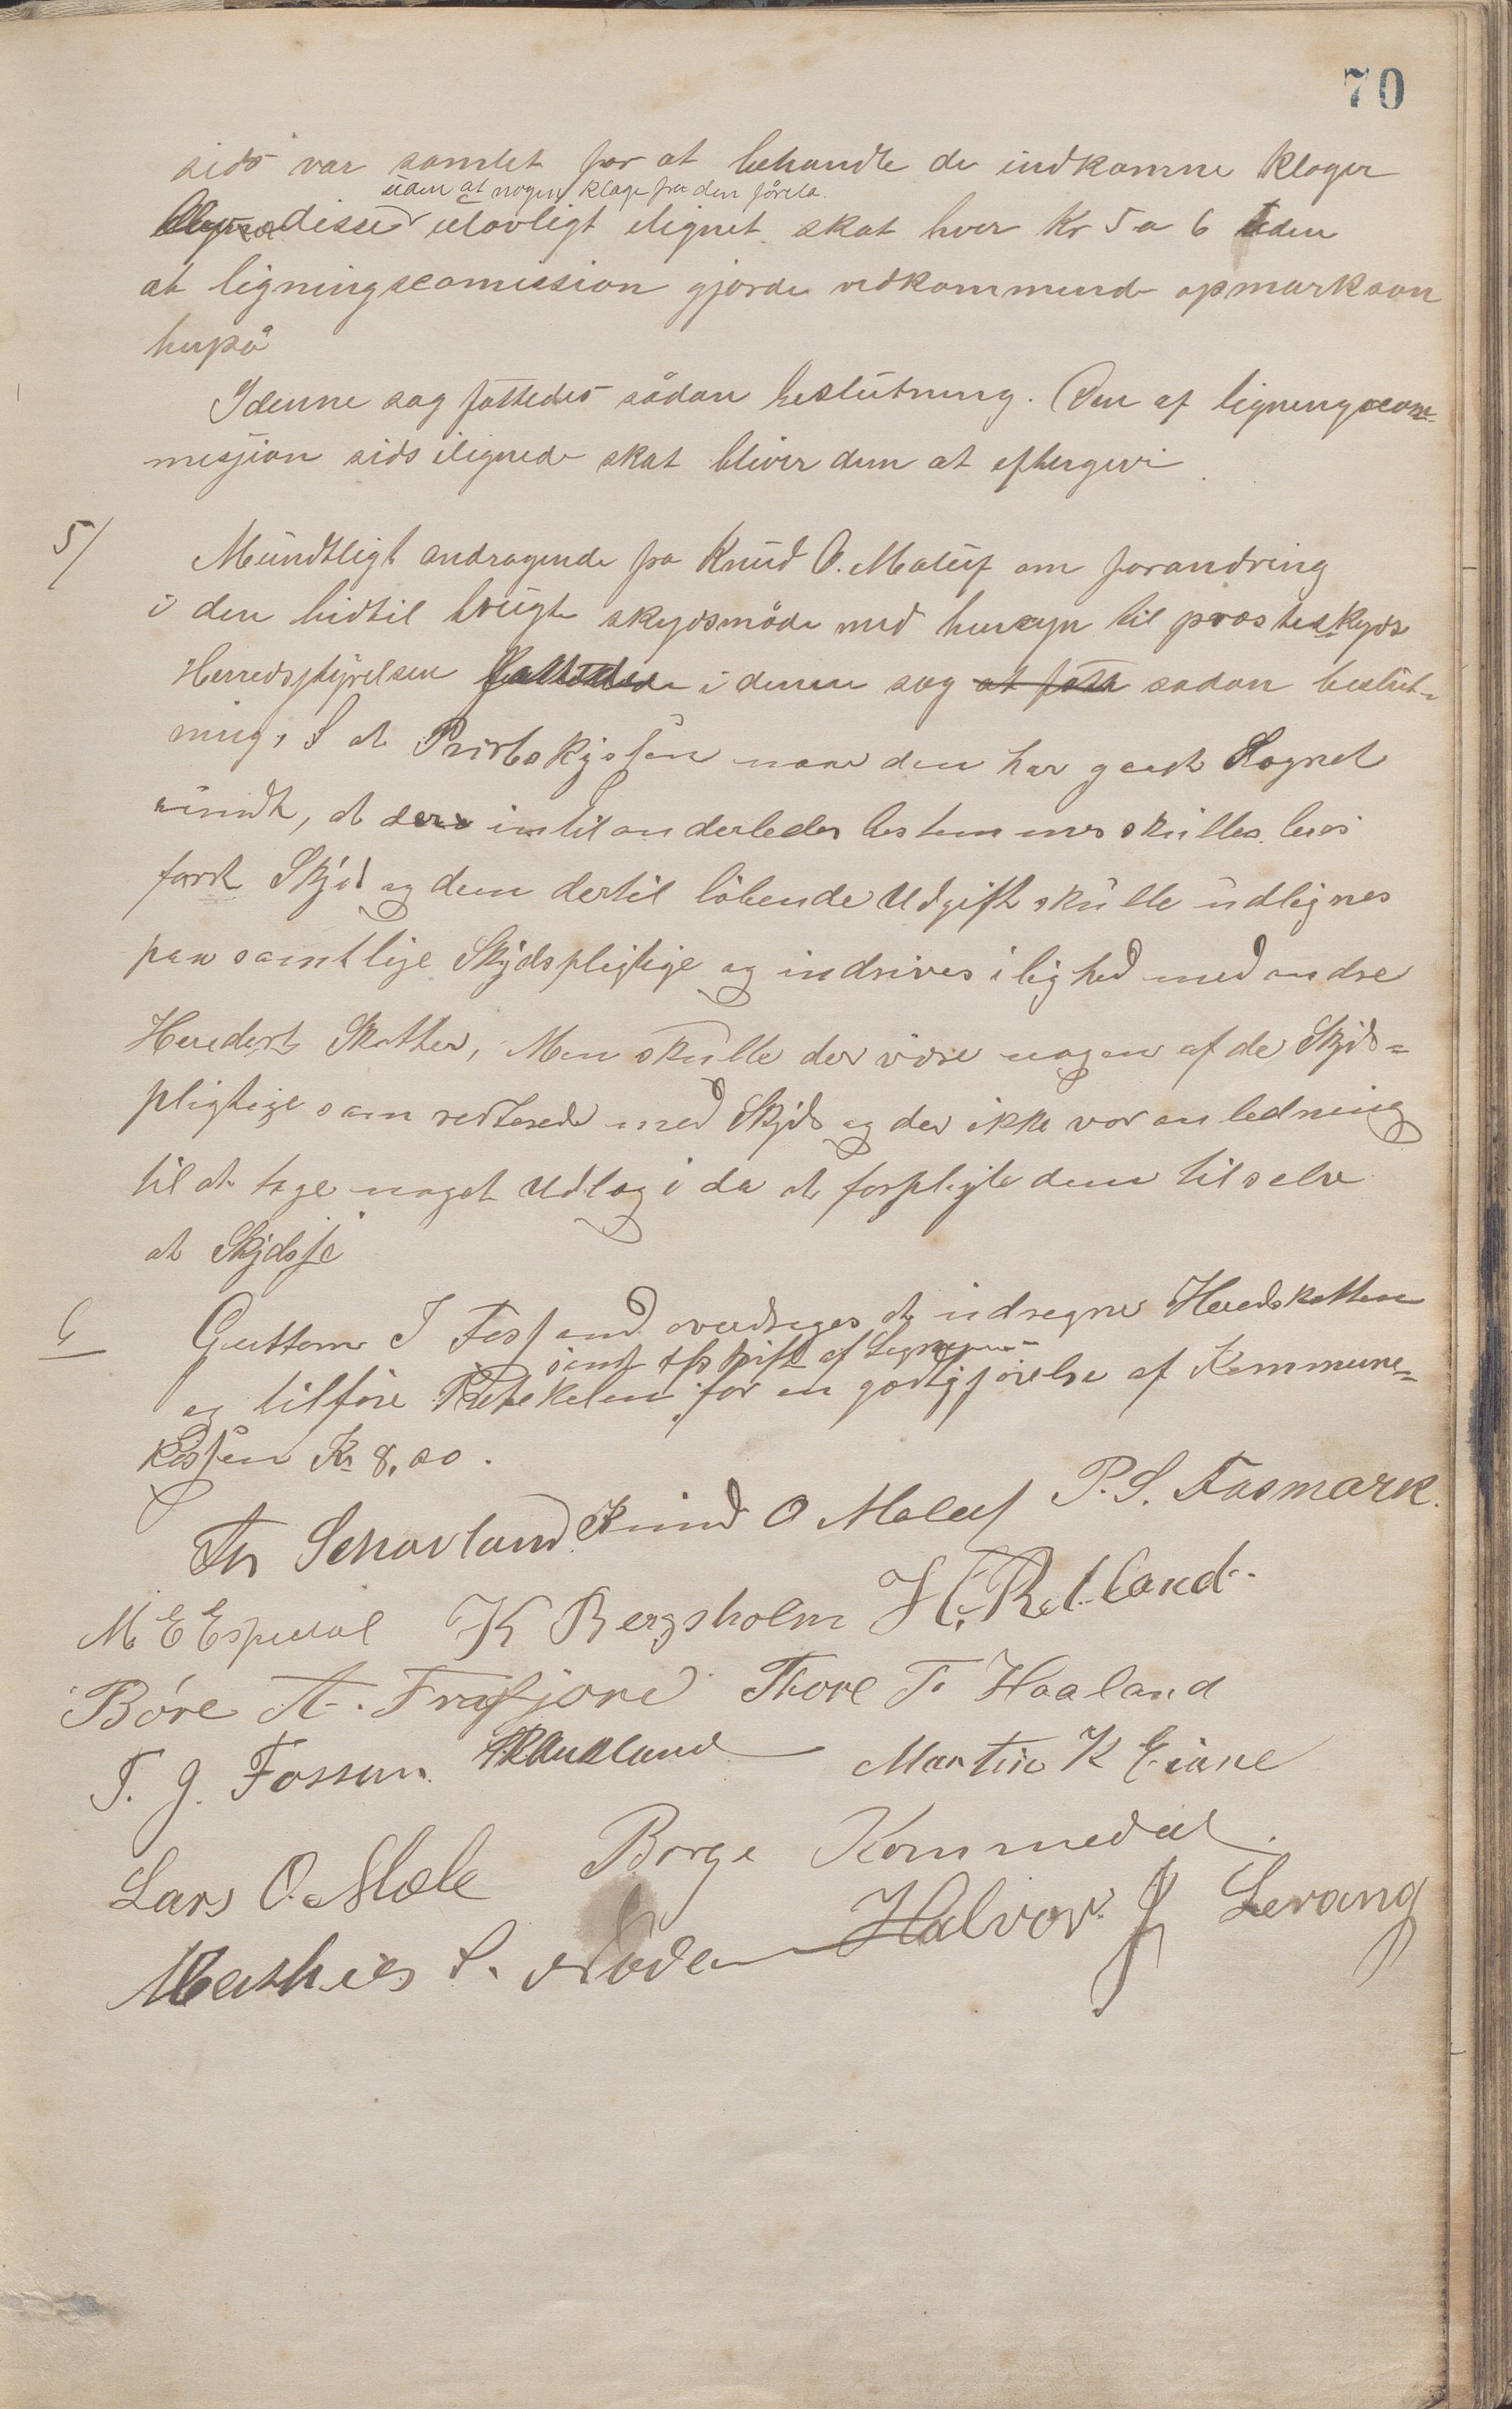 70
sids var samlet for at behandle de indkomne klager
uden at nogen klage fra den förela.
disse ulovligt ilignet skat hver Kr 5 a 6 uden
at ligningscomission gjorde vedkommende opmærksom
herpå
I denne sag fattedes sådan beslutning. Den af ligningscom-
mission sids ilignede skat bliver dem at eftergive.
5/ Mundtligt andragende fra Knud O. Maluf om forandring
i den hidtil brugte skydsmåde med hensyn til prosteskyds
Herredsstyrelsen fattede i denne sag at fatte sadan beslut-
ning, at naar den har gaaet Sognet
rundt, at der intil anderledes bestemmes skulle leies
fast Skyds og dem dertil löbende Udgift skulle udlignes
paa samtlige Skydspligtige og indrives i lighed med andre
Herredets Skatter, Men skulle der være nogen af de Skyds-
pligtige som resterede med Skyds og der ikke var anledning
til at tage noget Udlog i da at forpligte dem til selv
at Skydse
6 Guttorm I Fossand overdrages at udregne Heredskatten
samt Afskrift af
og tilföre Protokolen for en godtgjörelse af Kommune-
kassen Kr 8,00.
Th Schavland Knud O Maluf P. S. Fosmark.
M E Espedal K Bergsholm H. Rettland.
Böre A. Frafjord Thore T. Haaland
T. G. Fossum. Haukland Martin K Eiane
Lars O. Mæle Børge Kommedal.
Mathies S. Halvor J Levang